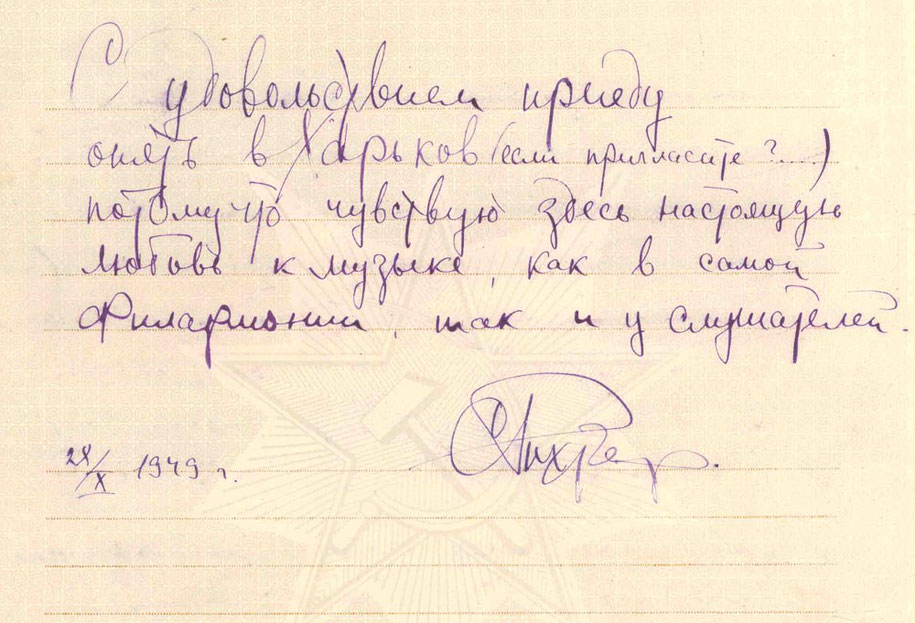 С удовольствием приеду
опять в Харьков (если пригласите?...)
потому что чувствую здесь настоящую
любовь к музыке, как в самой
Филармонии, так и у слушателей.
СРихтер.
28/X 1949 г.